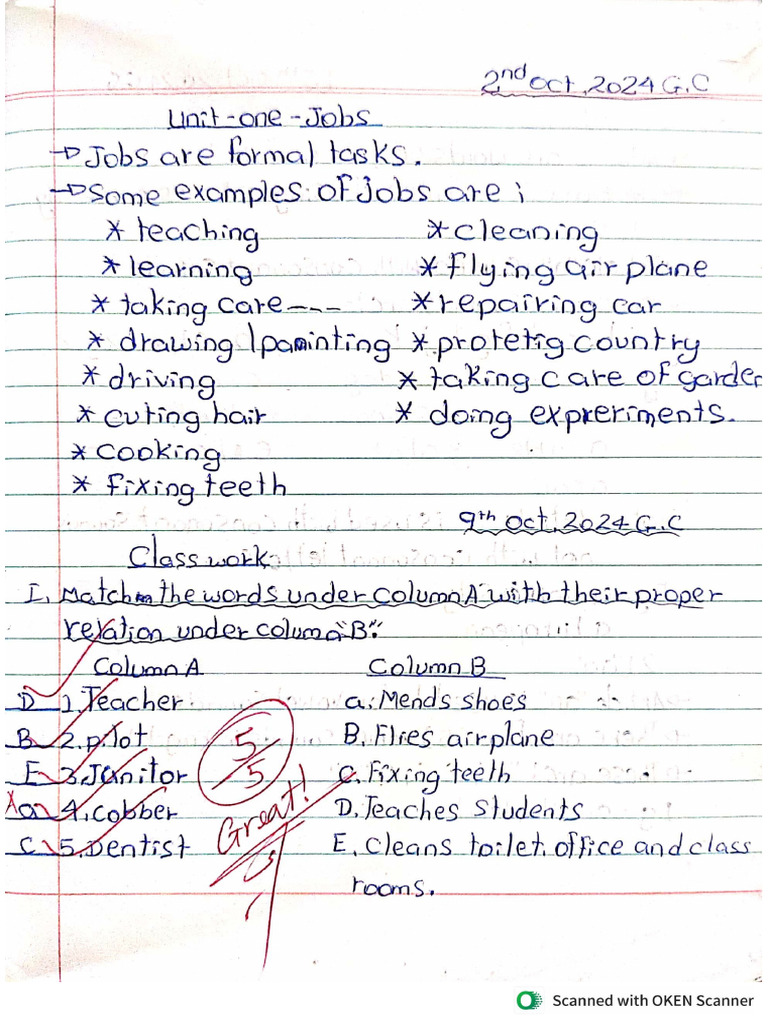 2nd Oct, 2024 G.C
Unit-one-Jobs
→ Jobs are formal tasks.
→ Some examples of jobs are ;
* teaching * cleaning
* learning * flying air plane
* taking care --- * repairing car
* drawing / painting * protetig country
* driving * taking care of garden
* cuting hair * doing expreriments.
* cooking
* fixing teeth
9th Oct, 2024 G.C
Class work
I, Match the words under column A" with their proper
relation under column "B".
Column A Column B
D 1. Teacher a. Mends shoes
B 2. pilot B. Flies airplane
E 3. Janitor C. Fixing teeth
A a 4. cobber D. Teaches students
C 5. Dentist E. Cleans toilet, office and class
rooms.
5/5
Great!
Scanned with OKEN Scanner